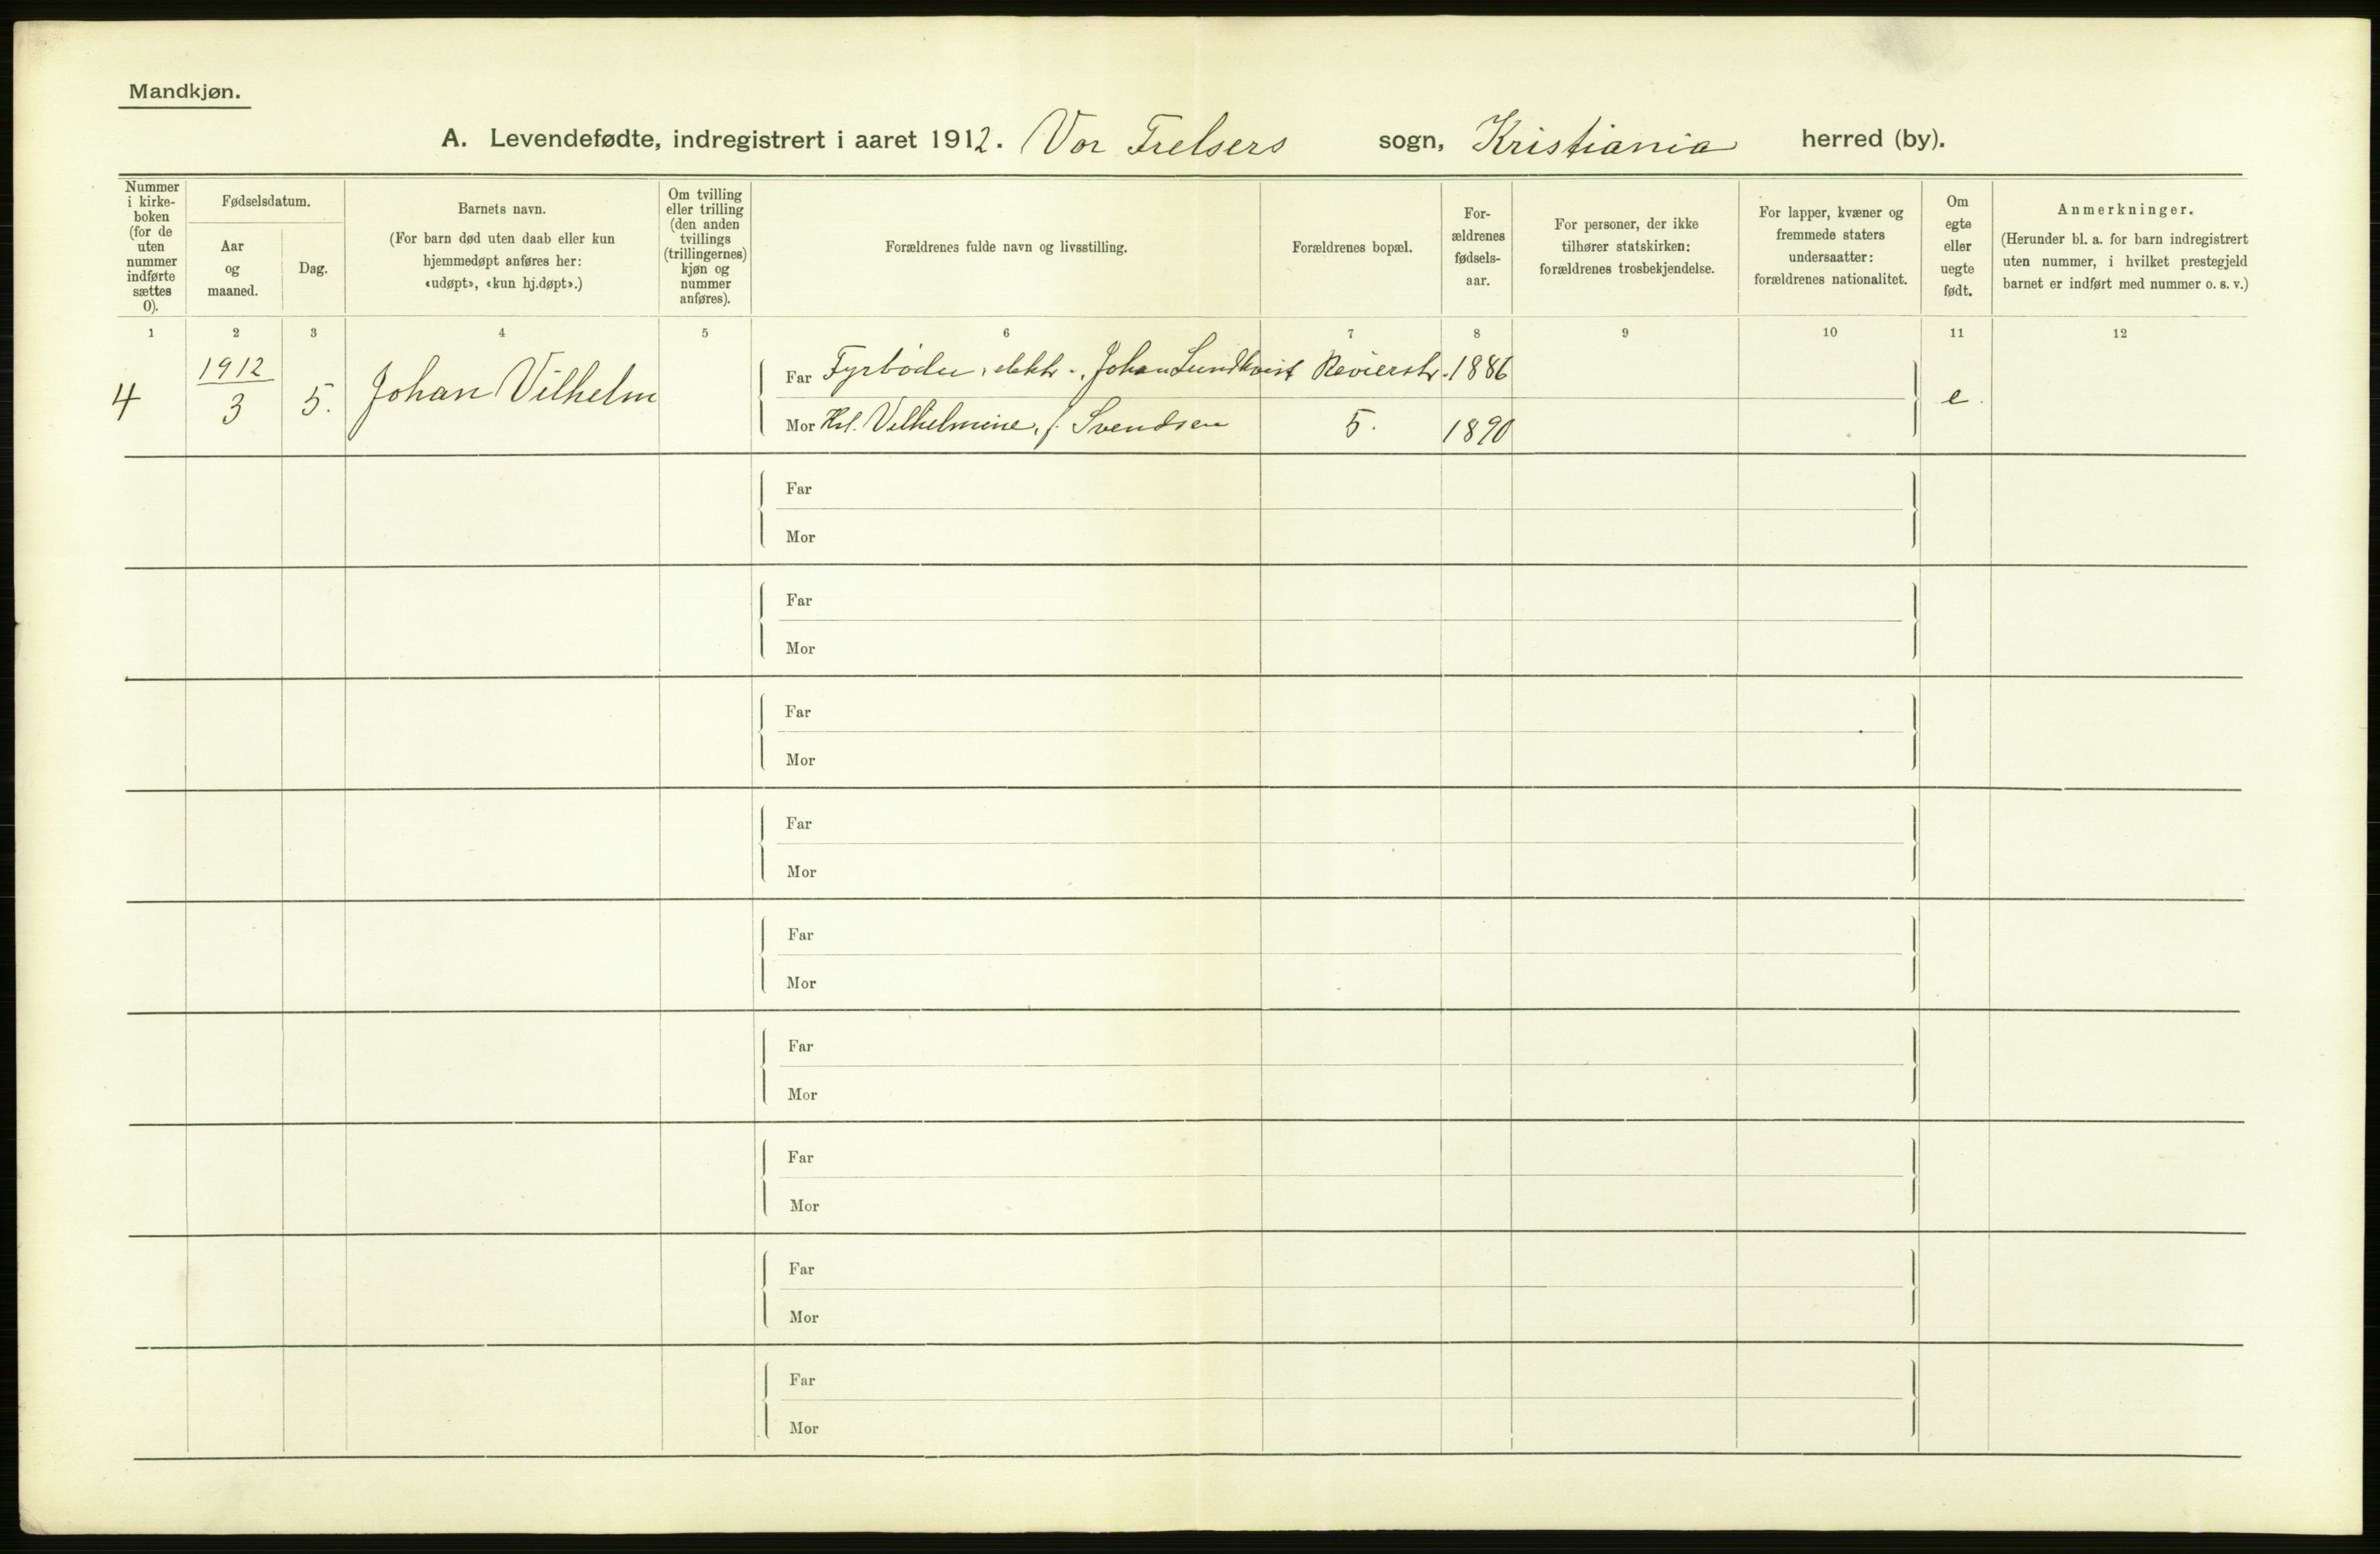 Mandkjøn.
A. Levendefødte, indregistrert i aaret 1912. Vor Frelsers sogn, Kristiania herred (by).
Nummer
i kirke-
boken
(for de
uten
nummer
indførte
sættes
0).
Fødselsdatum.
Aar
og
maaned.
Dag.
Barnets navn.
(For barn død uten daab eller kun
hjemmedøpt anføres her:
«udøpt», «kun hj.døpt».)
Om tvilling
eller trilling
(den anden
tvillings
(trillingernes)
kjøn og
nummer
anføres).
Forældrenes fulde navn og livsstilling.
Forældrenes bopæl.
For-
ældrenes
fødsels-
aar.
For personer, der ikke
tilhører statskirken:
forældrenes trosbekjendelse.
For lapper, kvæner og
fremmede staters
undersaatter:
forældrenes nationalitet.
Om
egte
eller
uegte
født.
Anmerkninger.
(Herunder bl. a. for barn indregistrert
uten nummer, i hvilket prestegjeld
barnet er indført med nummer o. s. v.)
1 2 3 4 5 6 7 8 9 10 11 12
4
1912
3
5.
Johan Vilhelm
Far Fyrbøder, elektr., Johan Lundkvist Revierstr. 1886
Mor Hst. Vilhelmine, f. Svendsen 5. 1890
e.
Far
Mor
Far
Mor
Far
Mor
Far
Mor
Far
Mor
Far
Mor
Far
Mor
Far
Mor
Far
Mor